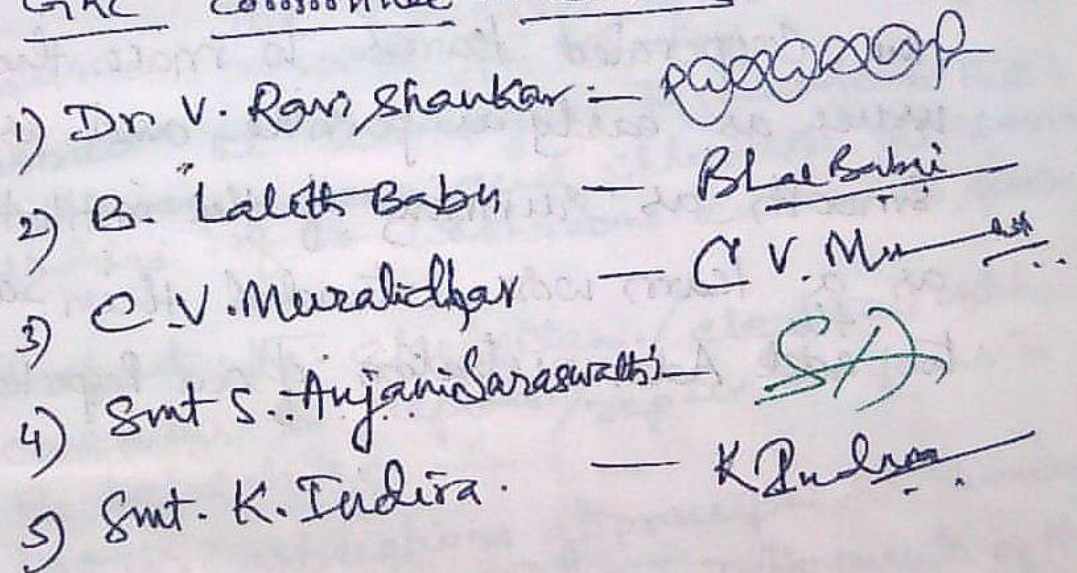 Committee
1) Dr. V. Ravi Shankar :—
2) B. Lalith Babu — BLal Babu
3) C.V. Muralidhar — C V. M
4) Smt S. Anjani Saraswathi — SA
5) Smt. K. Indira. — K Indira